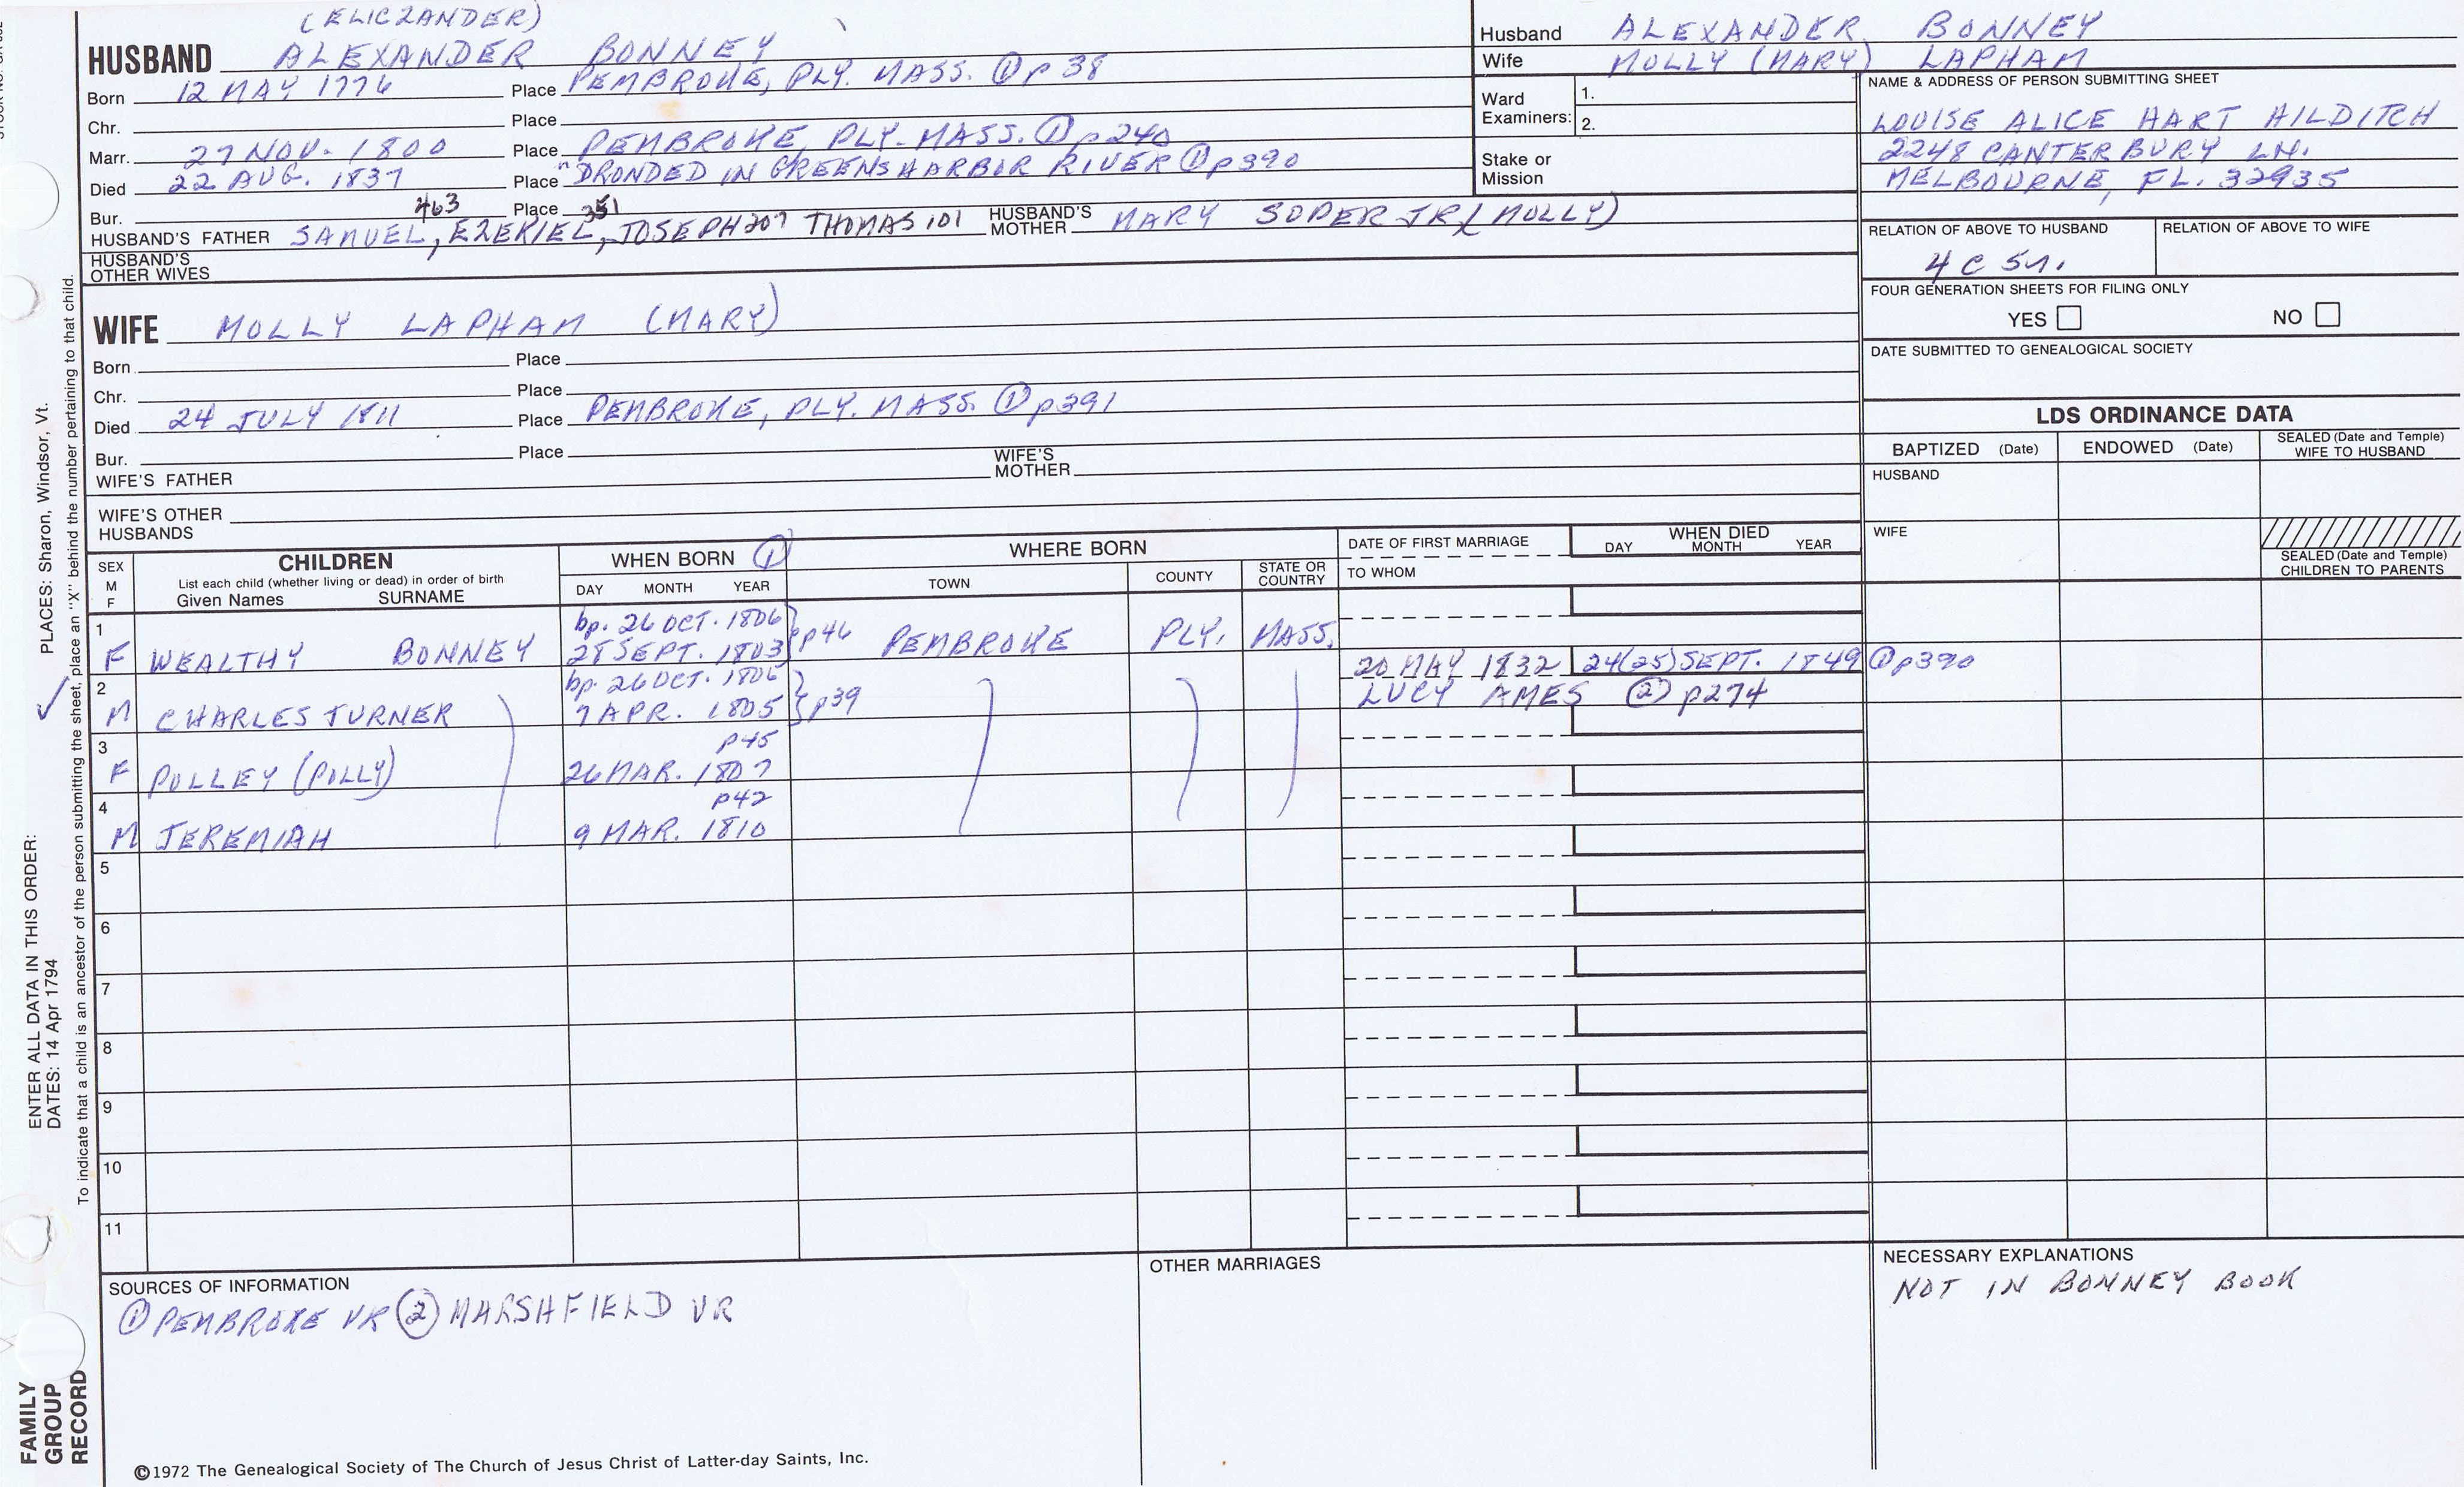 (ELICZANDER)
HUSBAND ALEXANDER BONNEY
Born 12 MAY 1776 Place PEMBROKE, PLY. MASS. ① p 38
Chr. Place
Marr. 27 NOV. 1800 Place PEMBROKE, PLY. MASS. ① p240
Died 22 AUG. 1837 Place "DRONDED IN GREENS HARBOR RIVER ① p390
Bur. Place
463 351
HUSBAND'S FATHER SAMUEL, EZEKIEL, JOSEPH 207 THOMAS 101 HUSBAND'S MOTHER MARY SOPER JR (MOLLY)
HUSBAND'S
OTHER WIVES
WIFE MOLLY LAPHAM (MARY)
Born Place
Chr. Place
Died 24 JULY 1811 Place PEMBROKE, PLY. MASS. ① p391
Bur. Place
WIFE'S FATHER WIFE'S MOTHER
WIFE'S OTHER
HUSBANDS
Husband ALEXANDER BONNEY
Wife MOLLY (MARY) LAPHAM
Ward
Examiners: 1.
2.
Stake or
Mission
NAME & ADDRESS OF PERSON SUBMITTING SHEET
LOUISE ALICE HART HILDITCH
2248 CANTERBURY LN.
MELBOURNE, FL. 32935
RELATION OF ABOVE TO HUSBAND RELATION OF ABOVE TO WIFE
4 C 5
FOUR GENERATION SHEETS FOR FILING ONLY
YES NO
DATE SUBMITTED TO GENEALOGICAL SOCIETY
LDS ORDINANCE DATA
BAPTIZED (Date) ENDOWED (Date) SEALED (Date and Temple)
WIFE TO HUSBAND
HUSBAND
WIFE
SEALED (Date and Temple)
CHILDREN TO PARENTS
SEX
M
F
CHILDREN
List each child (whether living or dead) in order of birth
Given Names SURNAME
WHEN BORN ①
DAY MONTH YEAR
WHERE BORN
TOWN COUNTY STATE OR
COUNTRY
DATE OF FIRST MARRIAGE
TO WHOM
WHEN DIED
DAY MONTH YEAR
1 bp. 26 OCT. 1806
F WEALTHY BONNEY 28 SEPT. 1803 pp46 PEMBROKE PLY. MASS.
2 bp. 26 OCT. 1806 20 MAY 1832 24(25) SEPT. 1849 ① p390
M CHARLES TURNER 7 APR. 1805 p39 LUCY AMES ② p274
3 p45
F POLLEY (POLLY) 26 MAR. 1807
4 p42
M JEREMIAH 9 MAR. 1810
5
6
7
8
9
10
11
SOURCES OF INFORMATION
① PEMBROKE VR ② MARSHFIELD VR
OTHER MARRIAGES
NECESSARY EXPLANATIONS
NOT IN BONNEY BOOK
©1972 The Genealogical Society of The Church of Jesus Christ of Latter-day Saints, Inc.
FAMILY
GROUP
RECORD
ENTER ALL DATA IN THIS ORDER:
DATES: 14 Apr 1794
PLACES: Sharon, Windsor, Vt.
To indicate that a child is an ancestor of the person submitting the sheet, place an "X" behind the number pertaining to that child.